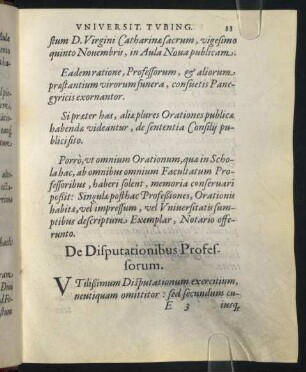 VNIVERSIT. TVBING. 33
stum D. Virgini Catharinæ sacrum, vigesimo
quinto Nouembris, in Aula Noua publicam.
Eadem ratione, Professorum, & aliorum
præstantium virorum funera, consuetis Pane-
gyricis exornantor.
Si præter has, aliæ plures Orationes publicæ
habendæ videantur, de sententia Consilij pu-
blici sito.
Porrò, vt omnium Orationum, quæ in Scho-
la hac, ab omnibus omnium Facultatum Pro-
fessoribus, haberi solent, memoria conseruari
possit: Singulæ posthac Professiones, Orationis
habitæ, vel impressum, vel Vniuersitatis sum-
ptibus descriptum Exemplar, Notario offe-
runto.
De Disputationibus Profes-
sorum.
VTilissimum Disputationum exercitium,
neutiquam omittitor: sed secundum cu-
E 3 iusq́;